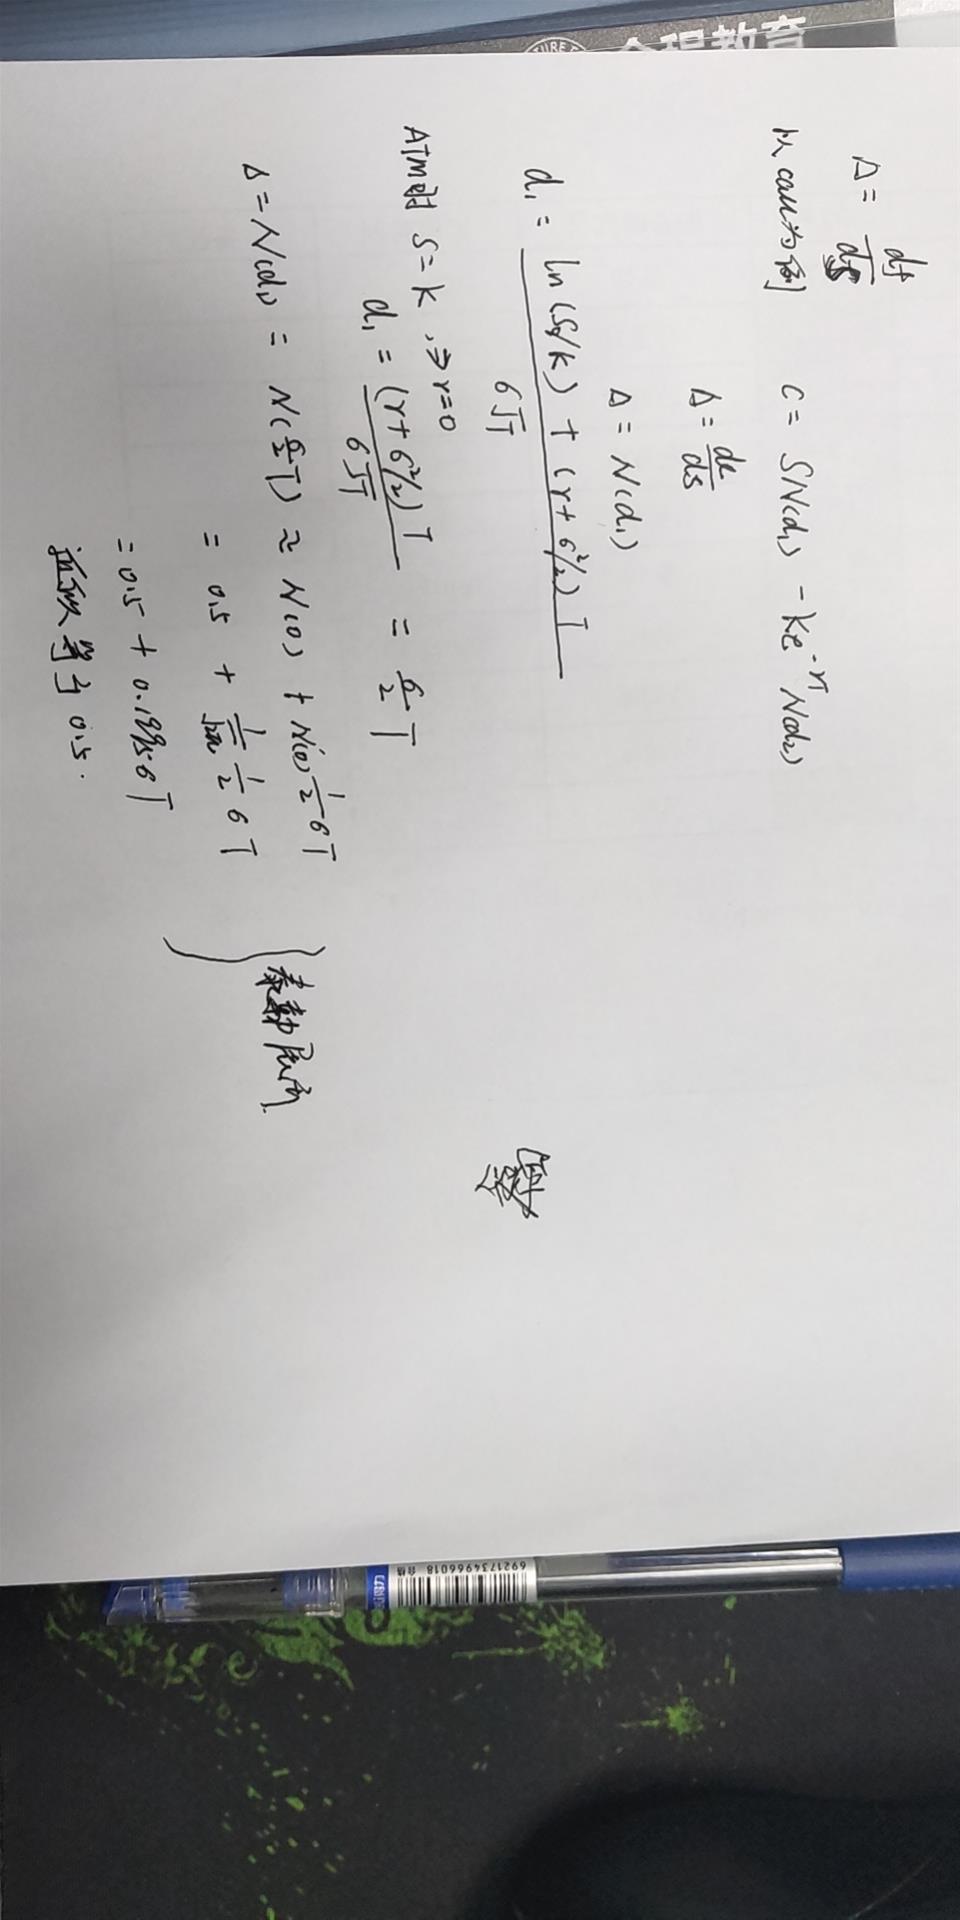 Δ = df/ds
以call为例 C = SN(d₁) - Ke^-rT N(d₂)
Δ = dc/ds
Δ = N(d₁)
d₁ = ln(S₀/K) + (r + σ²/2)T / σ√T
ATM时 S = K, 令r=0
d₁ = (r + σ²/2)T / σ√T = σ/2 T
Δ = N(d₁) = N(σ/2 T) ≈ N(0) + N'(0) 1/2 σT
= 0.5 + 1/√2π 1/2 σT
= 0.5 + 0.1995σT
近似等于0.5.
泰勒展开
全程教育
6921734966018